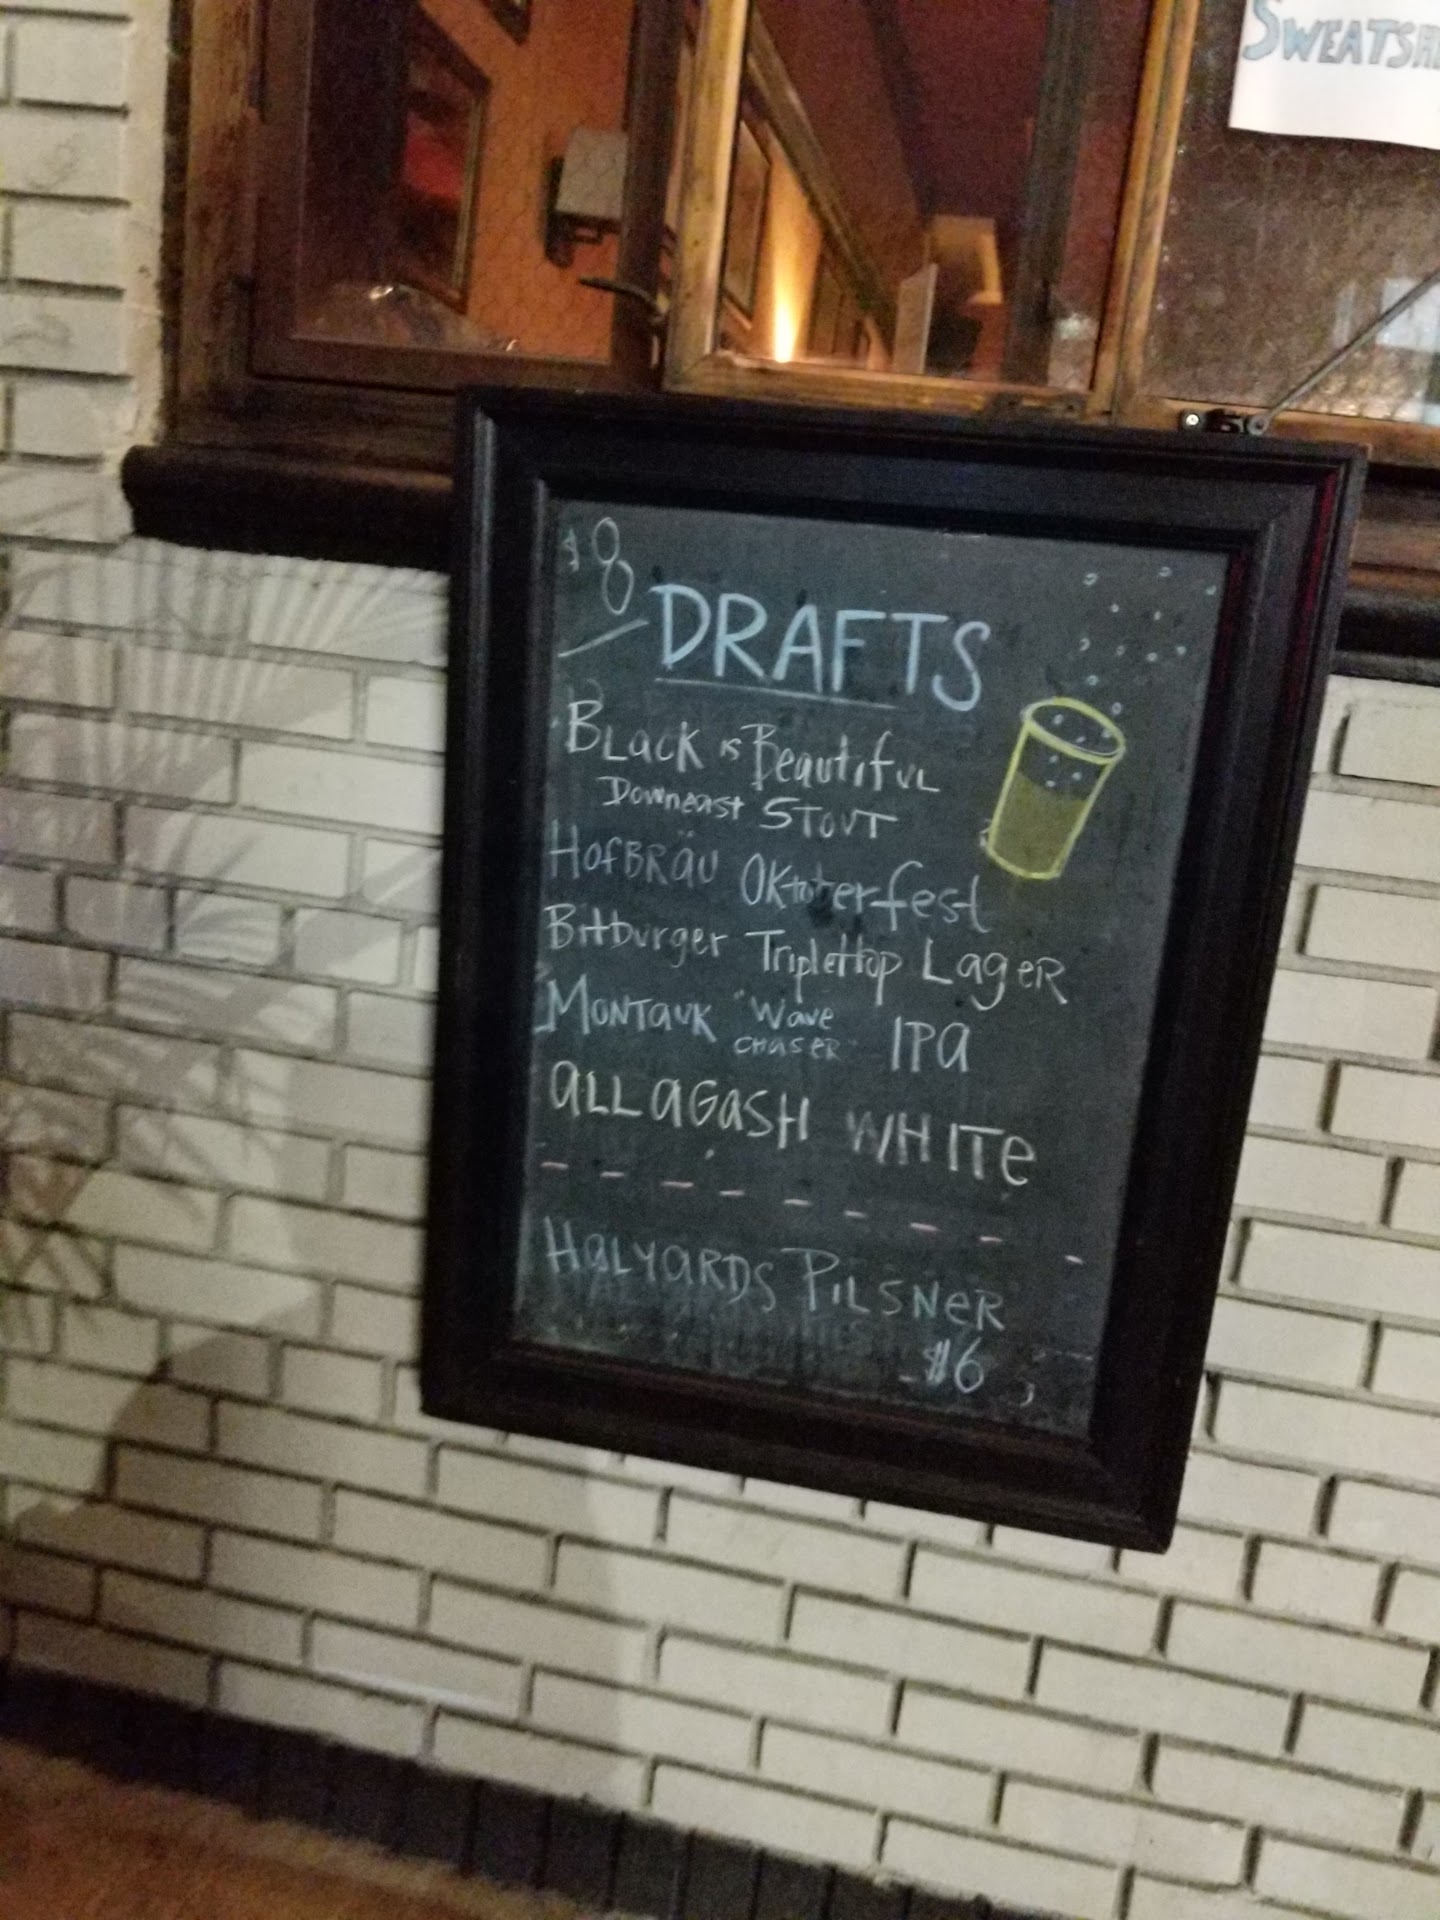 SWEATSH
$8
DRAFTS
BLack is Beautiful
Downeast STOUT
HofBRäU Oktoberfest
Bitburger Triplehop LageR
MONTaUK "Wave
CHaSeR" IPa
aLLaGaSH WHITe
HaLYaRDS PiLSNeR
$6